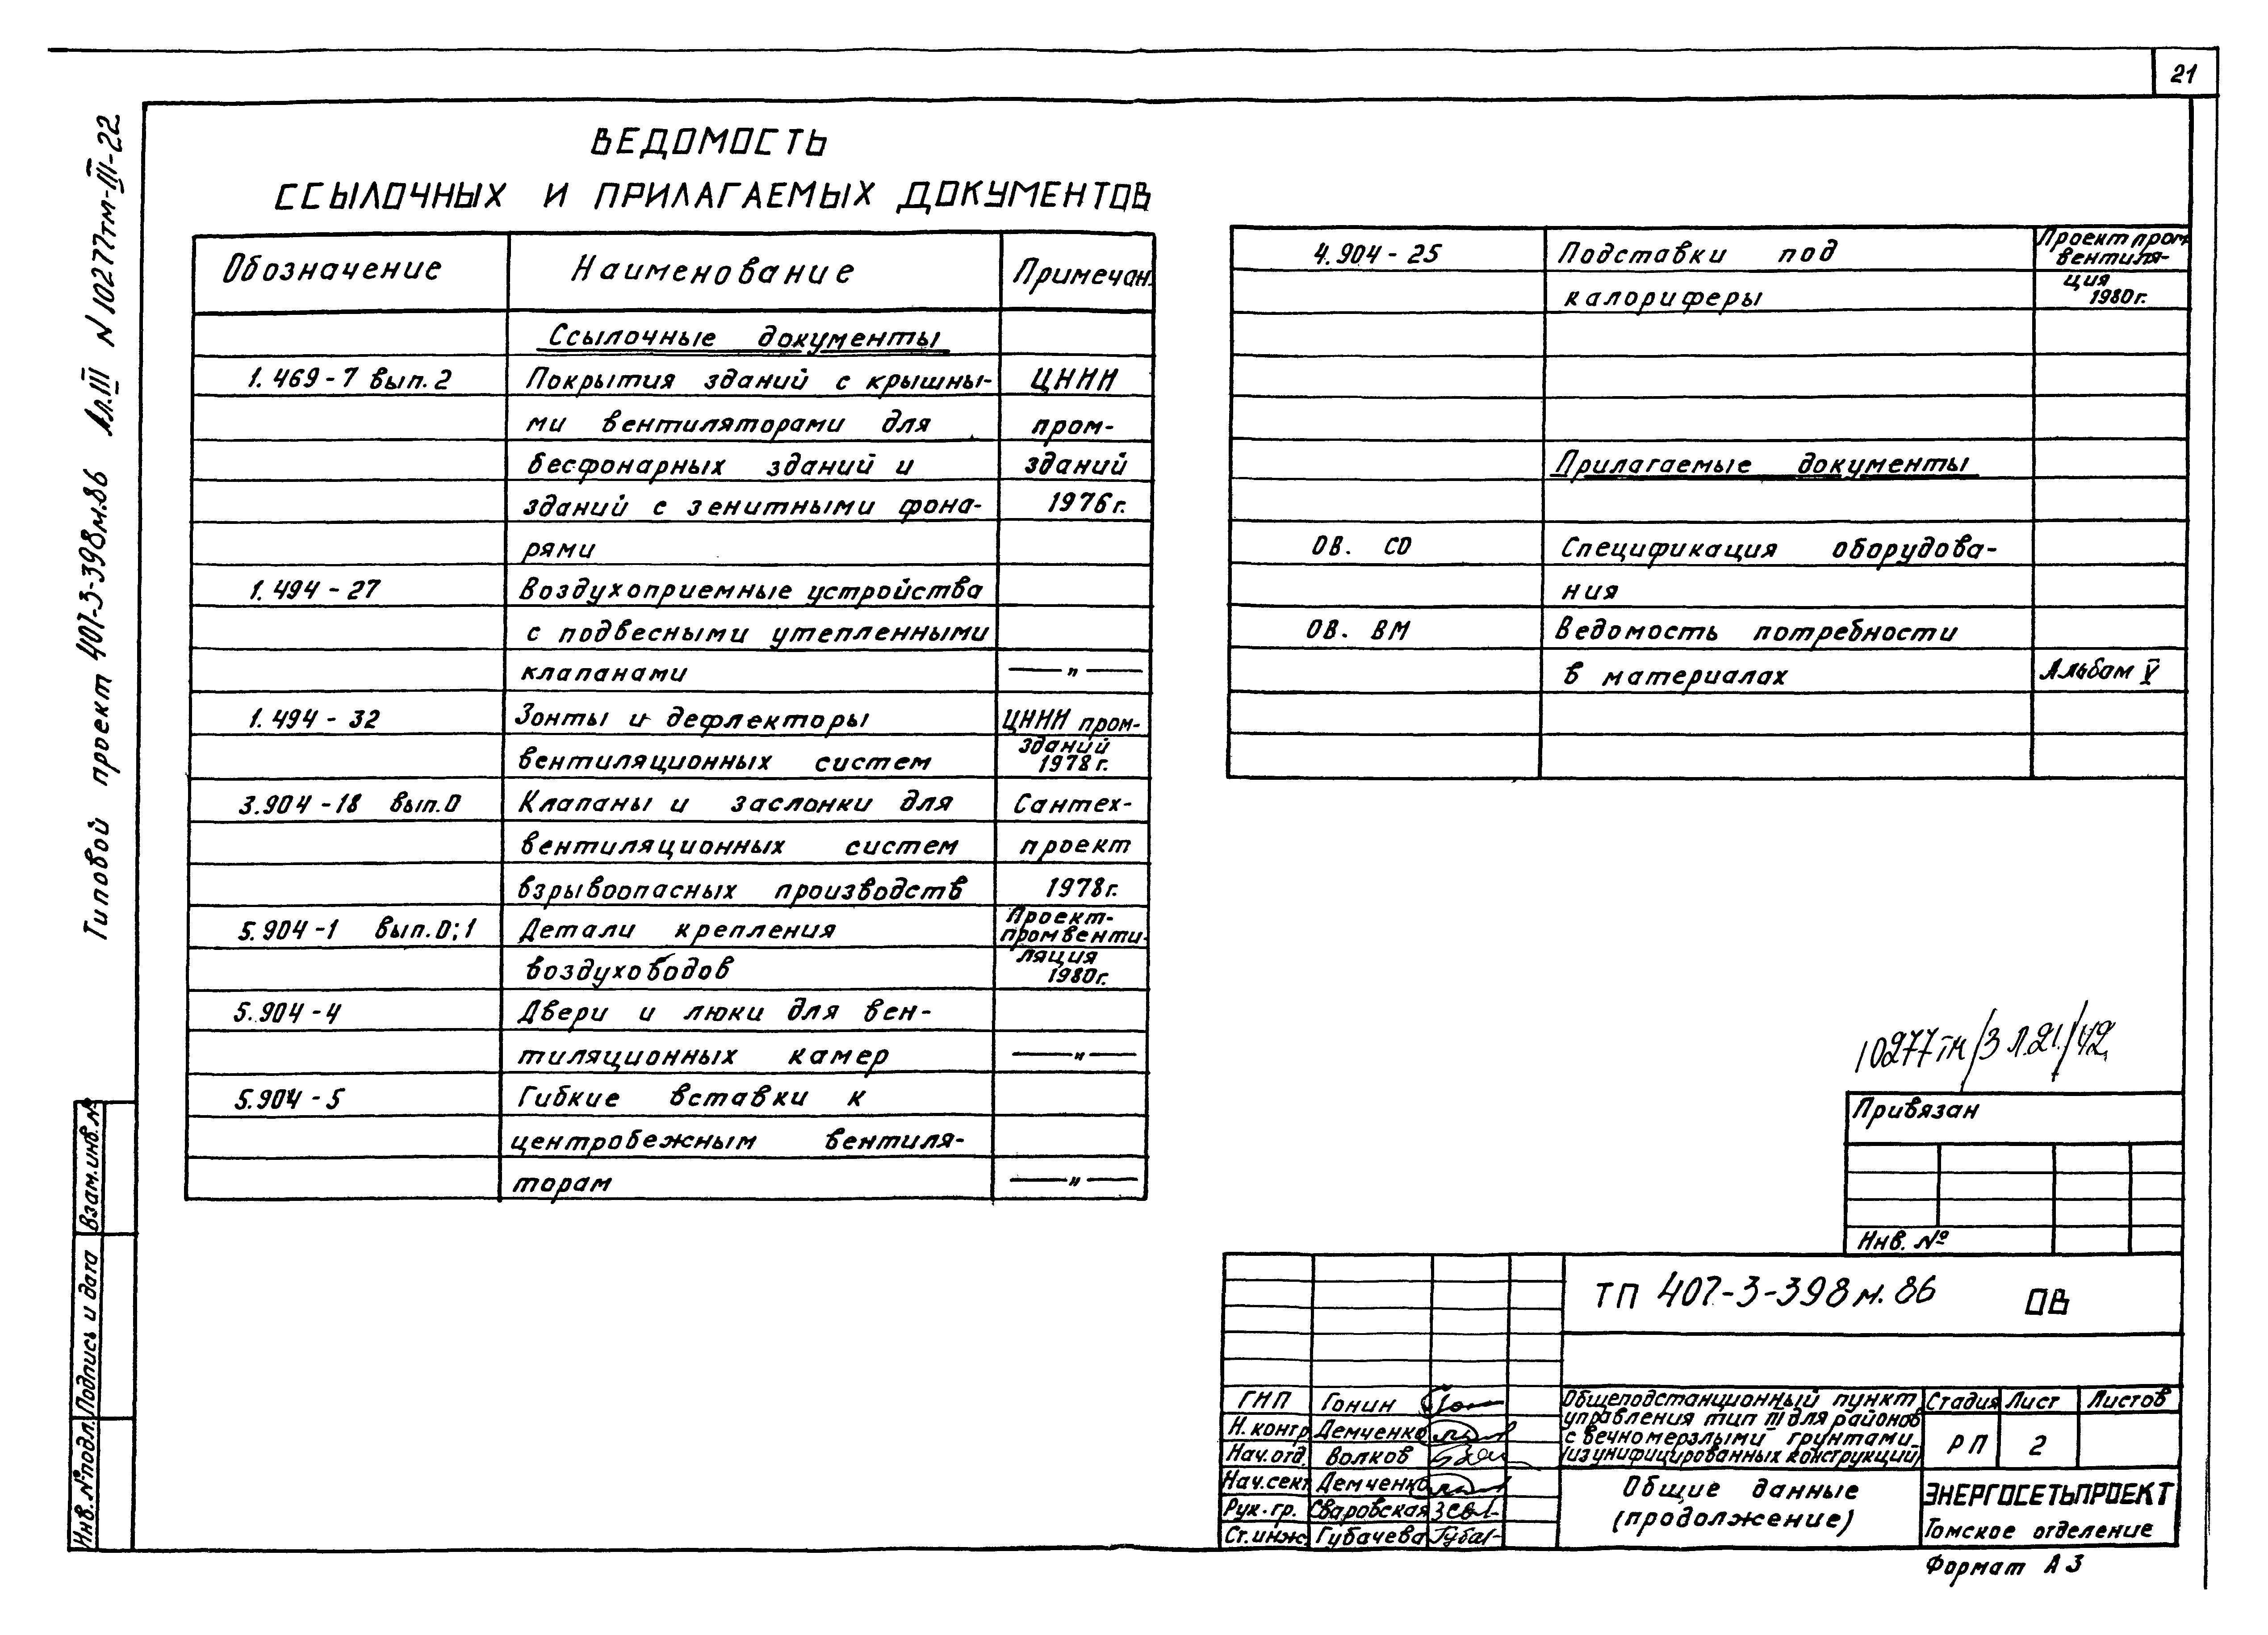 21
Типовой проект 407-3-398м.86 Ал.III N10277тм-III-22
ВЕДОМОСТЬ
ССЫЛОЧНЫХ И ПРИЛАГАЕМЫХ ДОКУМЕНТОВ
Обозначение Наименование Примечан.
Ссылочные документы
1.469-7 вып.2 Покрытия зданий с крышны- ЦНИИ
ми вентиляторами для пром-
бесфонарных зданий и зданий
зданий с зенитными фона- 1976г.
рями
1.494-27 Воздухоприемные устройства
с подвесными утепленными
клапанами —"—
1.494-32 Зонты и дефлекторы ЦНИИ пром-
зданий
вентиляционных систем 1978г.
3.904-18 вып.0 Клапаны и заслонки для Сантех-
вентиляционных систем проект
взрывоопасных производств 1978г.
Проект-
5.904-1 вып.0;1 Детали крепления промвенти-
ляция
воздуховодов 1980г.
5.904-4 Двери и люки для вен-
тиляционных камер —"—
5.904-5 Гибкие вставки к
центробежным вентиля-
торам —"—
Проект пром
4.904-25 Подставки под вентиля-
ция
калориферы 1980г.
Прилагаемые документы
ОВ. СО Спецификация оборудова-
ния
ОВ. ВМ Ведомость потребности
в материалах Альбом V
10277тм/3 л.21/42
Привязан
Инв. №
ТП 407-3-398м.86 ОВ
ГИП Гонин
Н. контр Демченко
Нач.отд. Волков
Нач.сект Демченко
Рук.гр. Сваровская
Ст.инж. Губачева
Общеподстанционный пункт
управления тип III для районов
с вечномерзлыми грунтами
(из унифицированных конструкций)
Стадия Лист Листов
РП 2
Общие данные
(продолжение)
ЭНЕРГОСЕТЬПРОЕКТ
Томское отделение
Формат А3
Взам.инв.№
Подпись и дата
Инв.№подл.